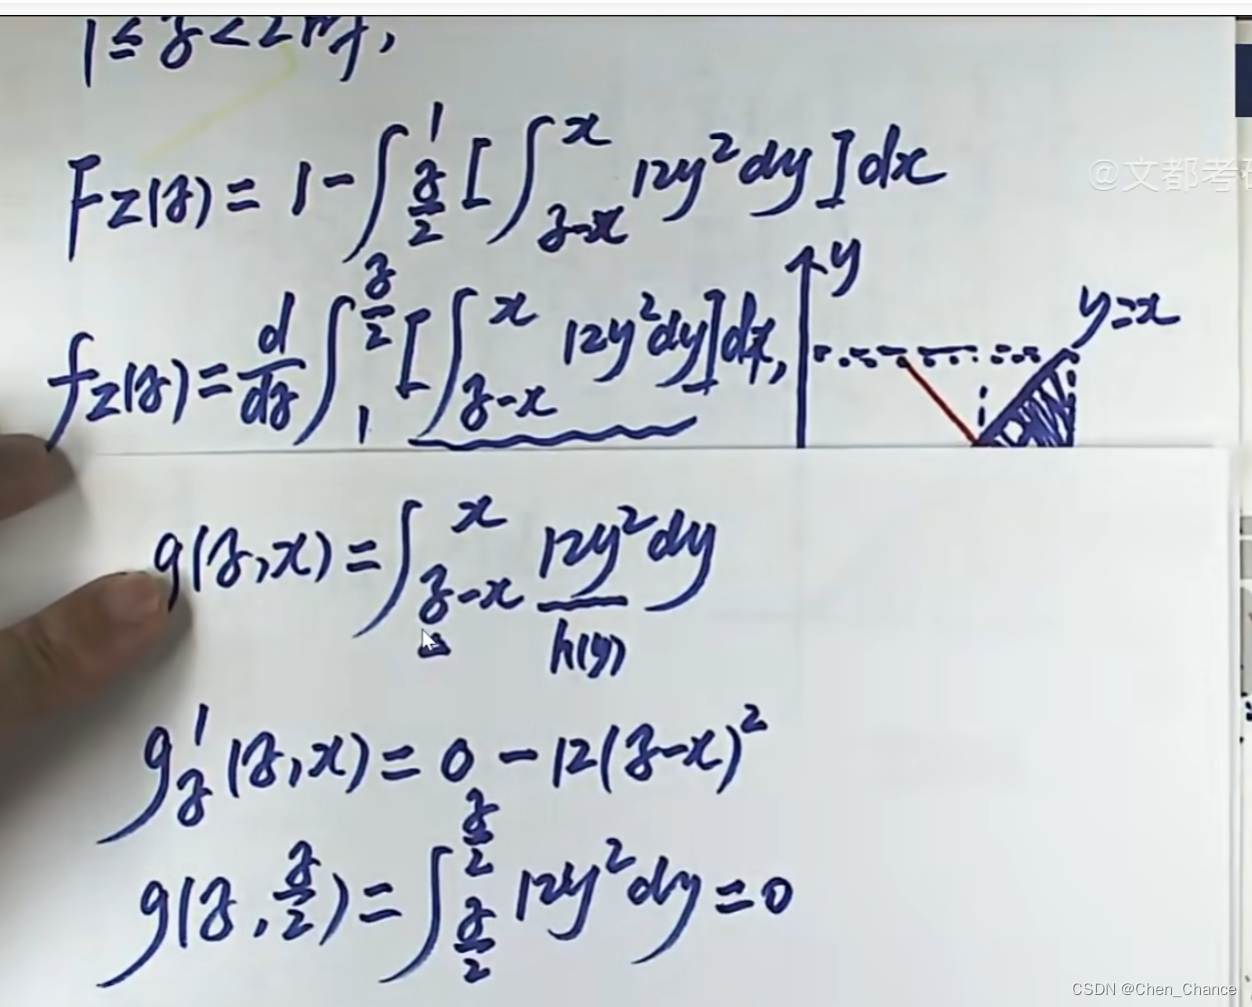 1≤z<2时,
F_Z(z) = 1-∫_{z/2}^{1} [∫_{z-x}^{x} 12y²dy]dx
@文都考研
f_Z(z) = d/dz ∫_{1}^{z/2} [∫_{z-x}^{x} 12y²dy]dx,
y
y=x
g(z,x) = ∫_{z-x}^{x} 12y²dy
h(y)
g'_z(z,x) = 0 - 12(z-x)²
g(z, z/2) = ∫_{z/2}^{z/2} 12y²dy = 0
CSDN @Chen_Chance